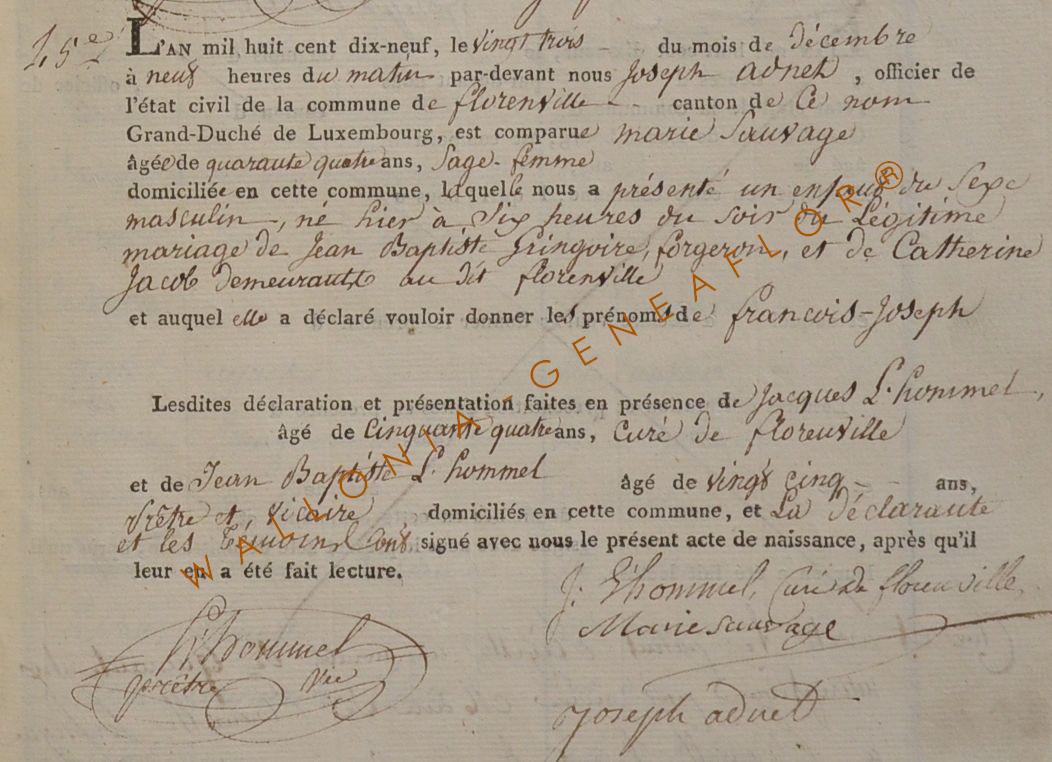 45e
L'AN mil huit cent dix-neuf, le vingt trois - du mois de décembre
à neuf heures du matin par-devant nous joseph adnet, officier de
l'état civil de la commune de florenville - - canton de Ce nom
Grand-Duché de Luxembourg, est comparue marie Sauvage
âgée de quarante quatre ans, Sage-femme
domiciliée en cette commune, laquelle nous a présenté un enfant du Sexe
masculin, né hier à Six heures du soir du Légitime
mariage de Jean Baptiste Gringoire, forgeron, et de Catherine
Jacob demeurants au dit florenville
et auquel elle a déclaré vouloir donner les prénoms de francois-Joseph
Lesdites déclaration et présentation faites en présence de Jacques L'hommel,
âgé de Cinquante quatre ans, Curé de florenville
et de Jean Baptiste L'hommel âgé de vingt cinq - - ans,
Prêtre et vicaire domiciliés en cette commune, et La déclarante
et les temoins ont signé avec nous le présent acte de naissance, après qu'il
leur en a été fait lecture.
J. L'hommel, Curé de florenville
Marie Sauvage
L'hommel
prêtre vic
joseph adnet
WALLONIA-GENEAFLOR®